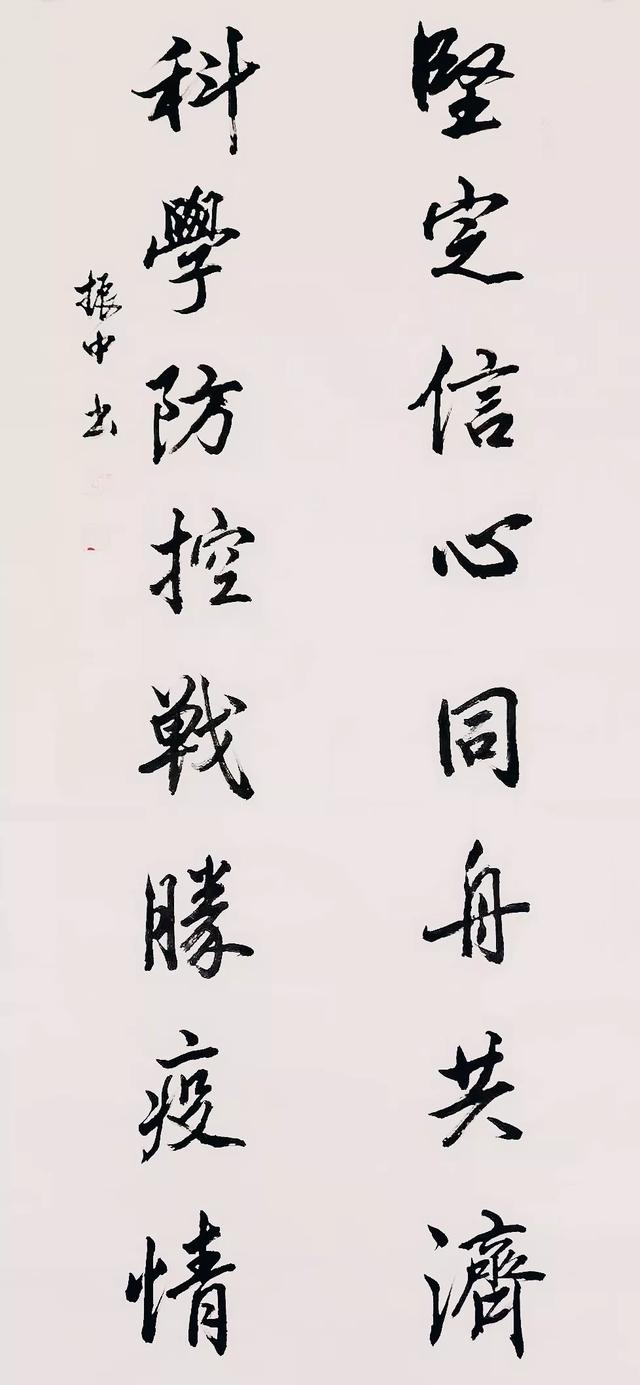 堅定信心同舟共濟
科學防控戰勝疫情
振中書